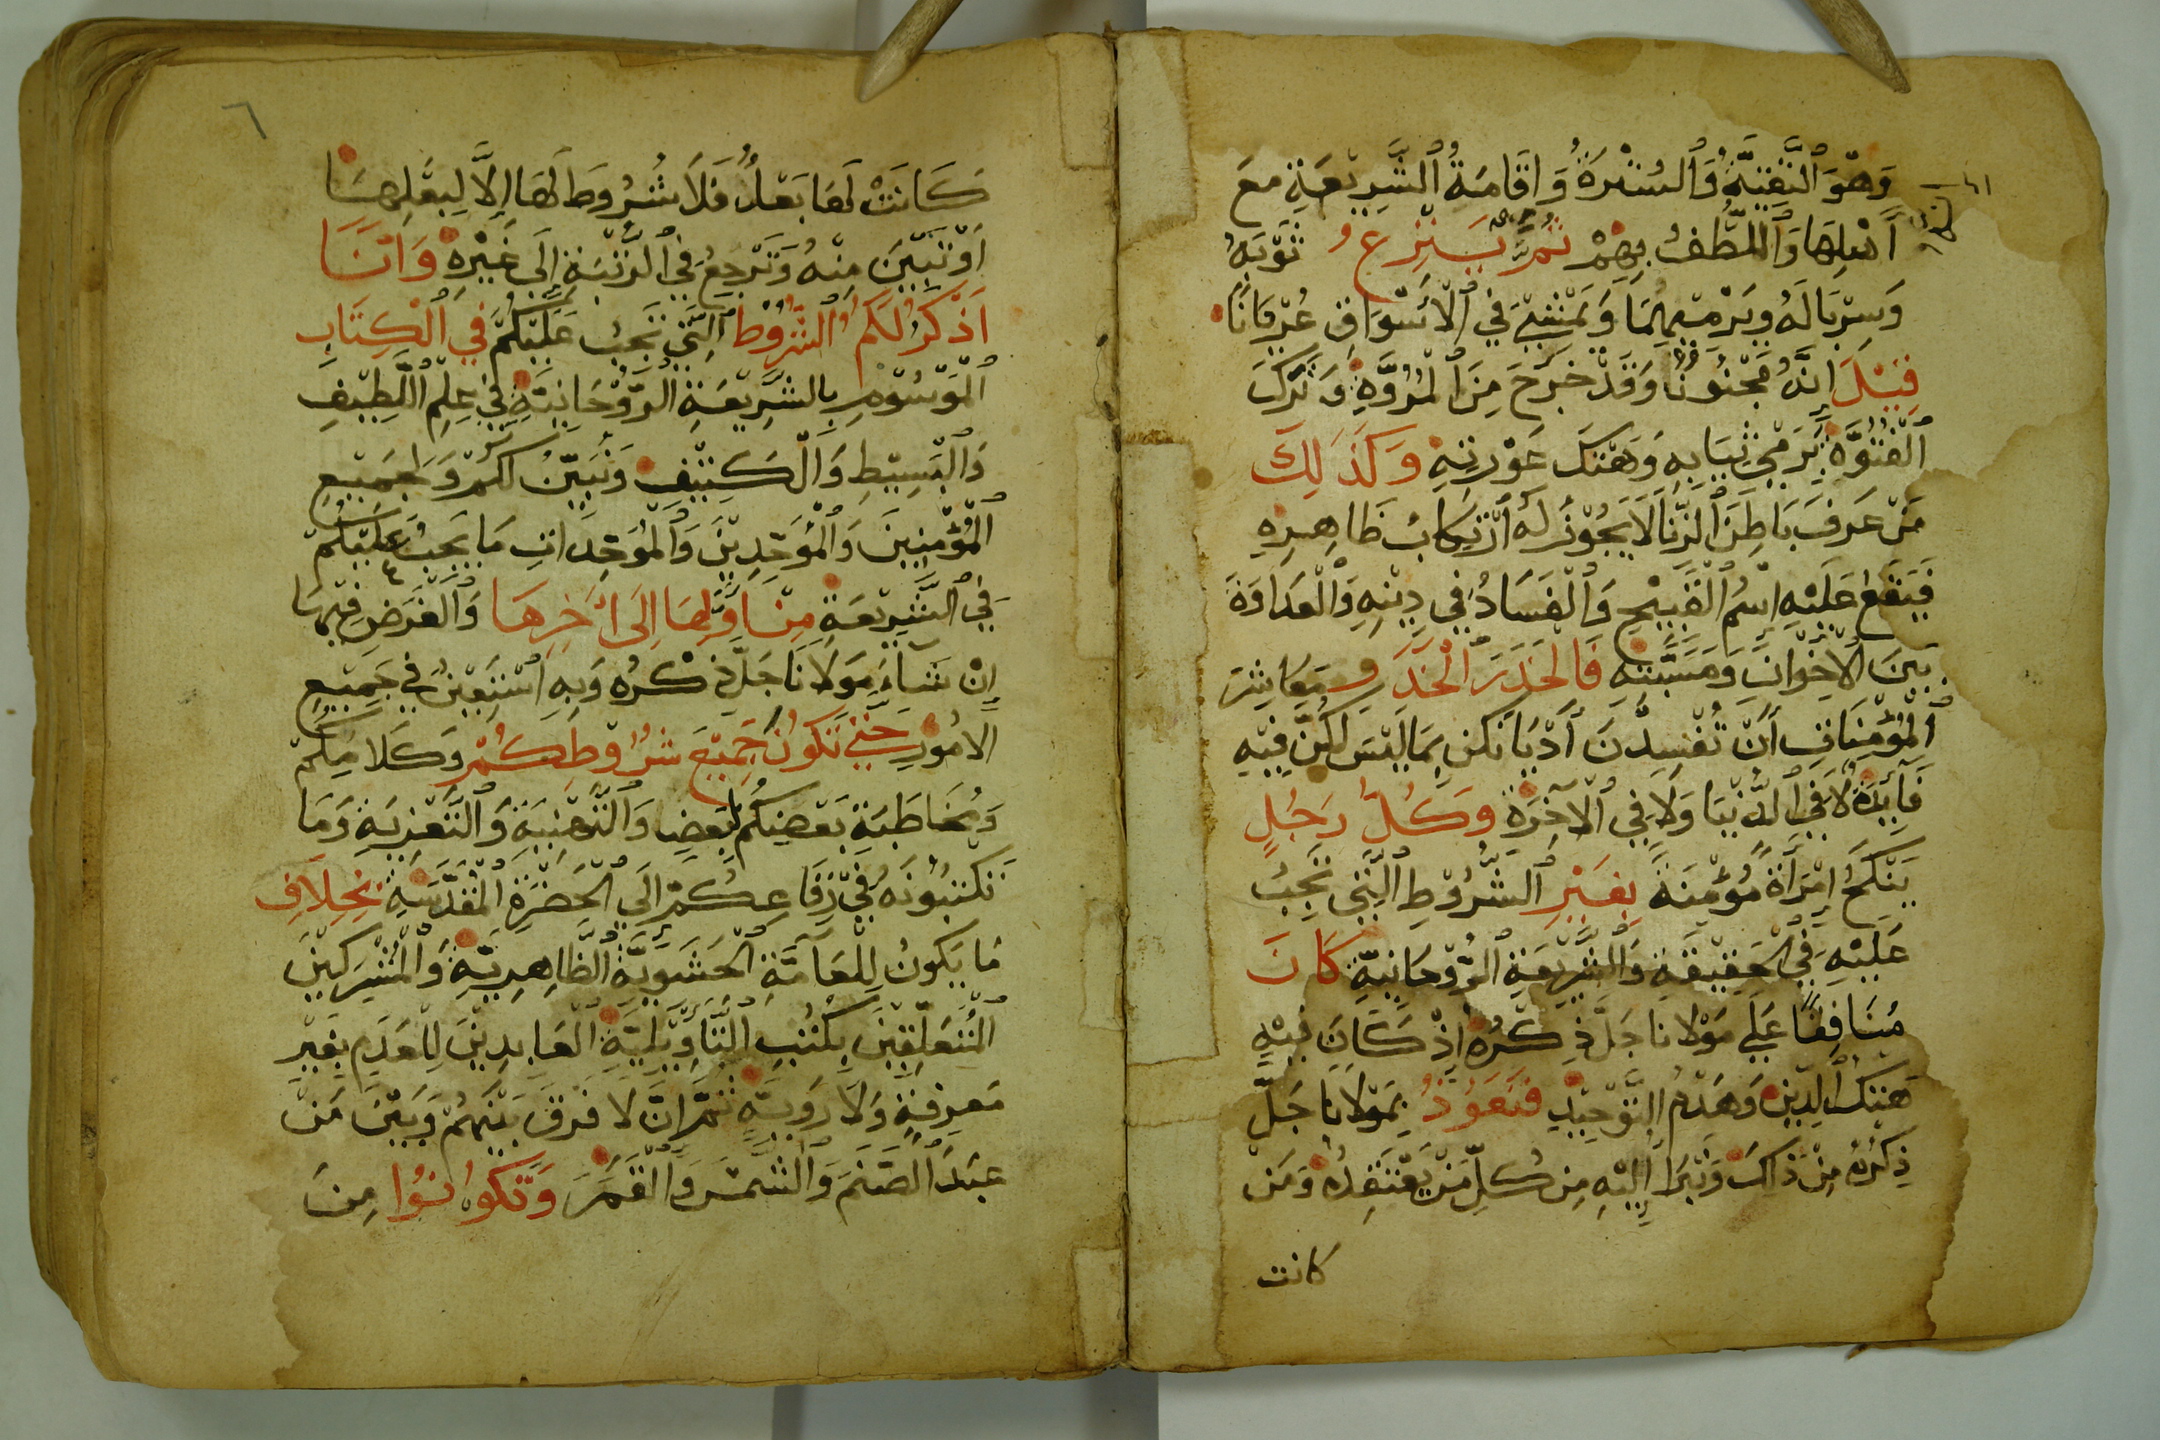 وَهُوَ التَّقِيَّةُ وَالسُّتْرَةُ وَاِقَامَةُ الشَّرِيْعَةِ مَعَ
اَهْلِهَا وَاللُّطْفُ بِهِمْ ثُمَّ يَنْزِعُ ثَوْبَهُ
وَسِرْبَالَهُ وَيَرْمِيْهِمَا وَيَمْشِيْ فِي الْاَسْوَاقِ عُرْيَانًا
قِيْلَ اِنَّهُ مَجْنُوْنًا وَقَدْ خَرَجَ مِنَ الْمُرُوَّةِ وَتَرَكَ
الْفُتُوَّةَ بِرَمْيِ ثِيَابِهِ وَهَتْكَ عَوْرَتِهِ وَكَذَلِكَ
مَنْ عَرَفَ بَاطِنَ الزِّنَا لَا يَجُوْزُ لَهُ ارْتِكَابُ ظَاهِرِهِ
فَيَقَعُ عَلَيْهِ اسْمُ الْقَبِيْحِ وَالْفَسَادُ فِي دِيْنِهِ وَالْعَدَاوَةَ
بَيْنَ الْاِخْوَانِ وَمَسَبَّتِهِ فَالْحَذَرَ الْحَذَرَ مَعَاشِرَ
الْمُؤْمِنَاتِ أَنْ تُفْسِدْنَ أَدْيَانَكُنَّ بِمَا لَيْسَ لَكُنَّ فِيْهِ
فَآئِدَةٌ لَا فِي الدُّنْيَا وَلَا فِي الْآخِرَةِ وَكُلُّ رَجُلٍ
يَنْكَحُ امْرَأَةً مُؤْمِنَةً بِغَيْرِ الشُّرُوْطِ الَّتِي تَجِبُ
عَلَيْهِ فِي الْحَقِيْقَةِ وَالشَّرِيْعَةِ الرُّوْحَانِيَّةِ كَانَ
مُنَافِقًا عَلَى مَوْلَانَا جَلَّ ذِكْرُهُ اِذْ كَانَ فِيْهِ
هَتْكُ الدِّيْنِ وَهَدْمُ التَّوْحِيْدِ فَنَعُوْذُ بِمَوْلَانَا جَلَّ
ذِكْرُهُ مِنْ ذَلِكَ وَنَبْرَأُ اِلَيْهِ مِنْ كُلِّ مَنْ يَعْتَقِدُهُ وَمَنْ
كانت
٦
كَانَتْ لَهَا بَعْلٌ فَلَا شُرُوْطَ لَهَا اِلَّا لِبَعْلِهَا
اَوْ تَبِيْنَ مِنْهُ وَتَرْجِعُ فِي الزِّيْجَةِ اِلَى غَيْرِهِ وَاَنَا
اَذْكُرُ لَكُمُ الشُّرُوْطَ الَّتِي تَجِبُ عَلَيْكُمْ فِي الْكِتَابِ
الْمَوْسُوْمِ بِالشَّرِيْعَةِ الرُّوْحَانِيَّةِ فِي عِلْمِ اللَّطِيْفِ
وَالْبَسِيْطِ وَالْكَثِيْفِ وَنُبَيِّنُ لَكُمْ وَلِجَمِيْعِ
الْمُؤْمِنِيْنَ وَالْمُوَحِّدِيْنَ وَالْمُوَحِّدَاتِ مَا يَجِبُ عَلَيْكُمْ
فِي الشَّرِيْعَةِ مِنْ اَوَّلِهَا اِلَى اَخِرِهَا وَالْغَرَضِ فِيْهَا
اِنْ شَاءَ مَوْلَانَا جَلَّ ذِكْرُهُ وَبِهِ اَسْتَعِيْنُ فِي جَمِيْعِ
الْاُمُوْرِ حَتَّى تَكُوْنَ جَمِيْعَ شُرُوْطِكُمْ وَكَلَامِكُمْ
وَمُخَاطَبَةِ بَعْضِكُمْ لِبَعْضٍ وَالتَّهْنِيَةِ وَالتَّعْزِيَةِ وَمَا
تَكْتُبُوْنَهُ فِيْ رِقَاعِكُمْ اِلَى الْحَضْرَةِ الْمُقَدَّسَةِ بِخِلَافِ
مَا يَكُوْنُ لِلْعَامَّةِ الْحَشَوِيَّةِ الظَّاهِرِيَّةِ وَالْمُشْرِكِيْنَ
الْمُتَعَلِّقِيْنَ بِكُتُبِ التَّاوِيْلِيَّةِ الْعَابِدِيْنَ لِلْعَدَمِ بِغَيْرِ
مَعْرِفَةٍ وَلَا رَوِيَّةٍ ثُمَّ اَنَّ لَا فَرْقَ بَيْنَهُمْ وَبَيْنَ مَنْ
عَبَدَ الصَّنَمَ وَالشَّمْسَ وَالْقَمَرَ وَتَكُوْنُوْا مِنَ